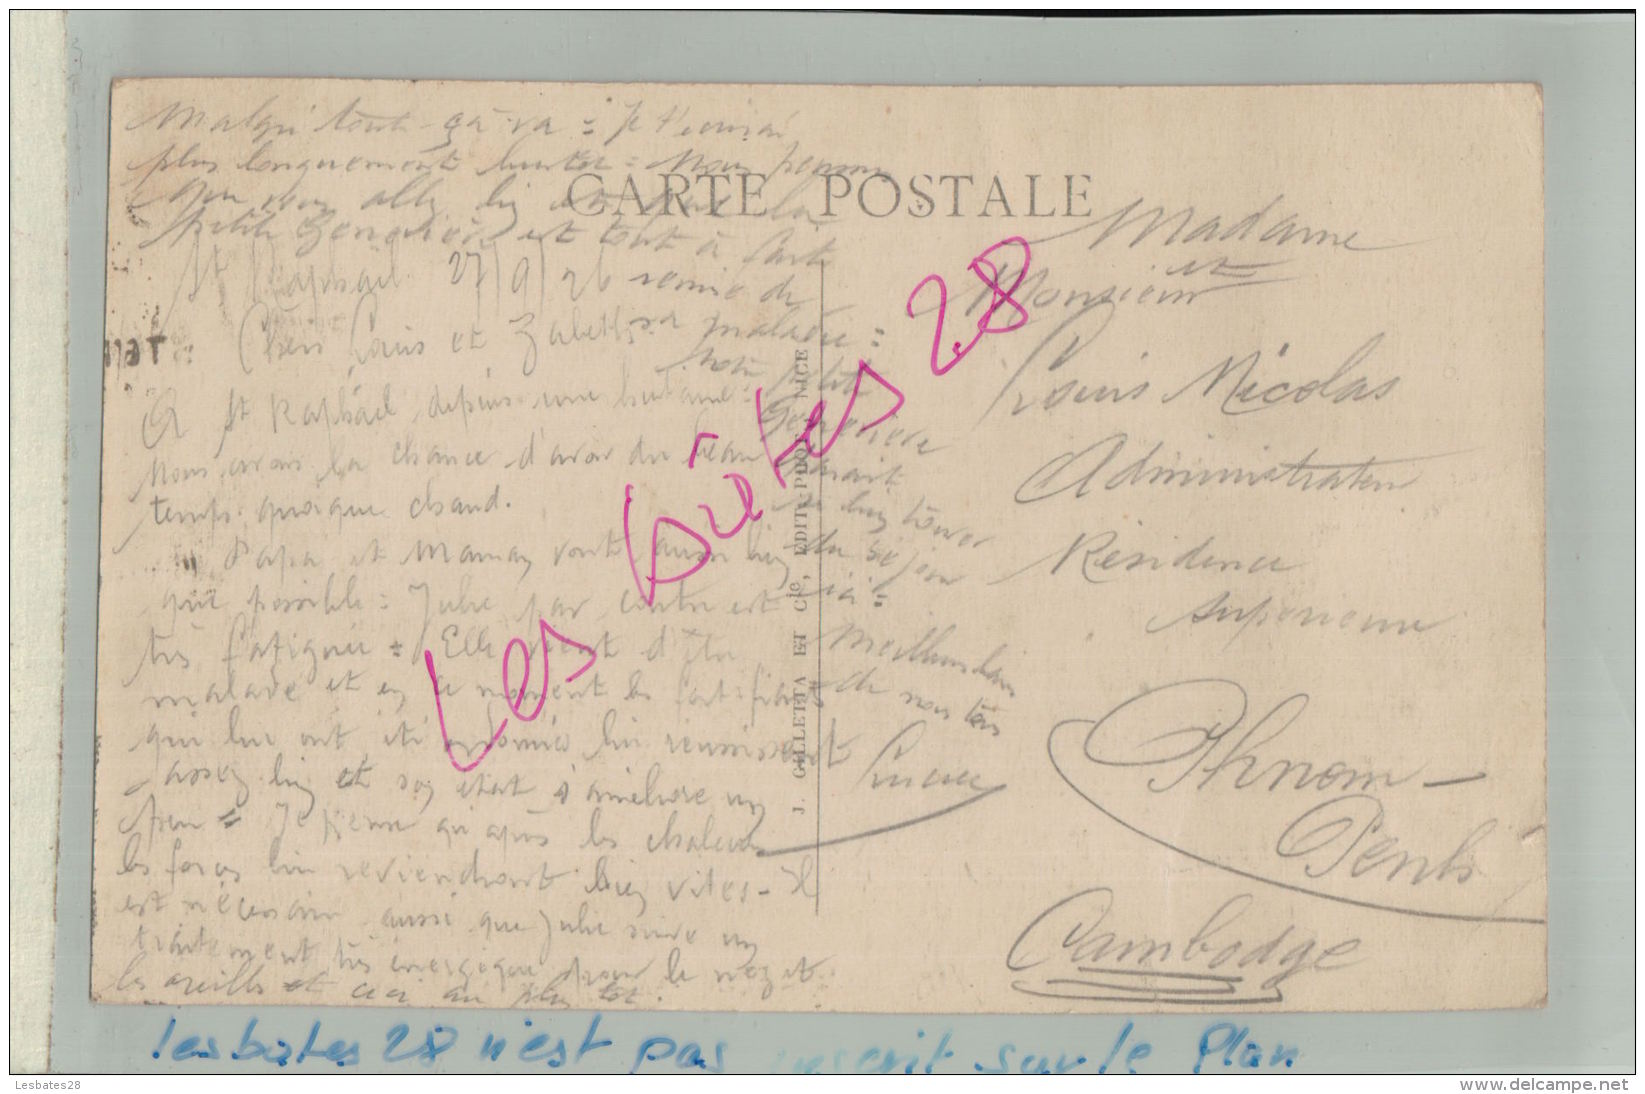 CARTE POSTALE
St Raphaël 27/9/26
Chers Louis et Zabeth
A St Raphaël depuis une huitaine =
Nous avons la chance d'avoir du beau
temps quoique chaud.
Papa et Maman vont aussi bien
que possible = Julie par contre est
très fatiguée = Elle vient d'être
malade et en ce moment les fortifiants
qui lui ont été ordonnés lui réussissent
assez bien et son état s'améliore un
peu = Je pense qu'après les chaleurs
les forces lui reviendront bien vites - Il
est nécessaire aussi que Julie suive un
traitement très énergique pour le nez et
les oreilles et ceci au plus tôt.
Malgré tout ça va = Je t'écrirai
plus longuement bientôt = Nous pensons
que vous allez bien et que la
petite Geneviève est tout à fait
remise de
sa maladie =
Notre petite
Geneviève
paraît
se bien trouver
du séjour
ici =
Meilleurs baisers
de nous tous
Lucien
Madame
et
Monsieur
Louis Nicolas
Administrateur
Résidence
Supérieure
Phnom-
Penh
Cambodge
J. GILLETTA ET Cie, EDIT. PHOT. NICE
Les bûtes 28
Les bates 28 n'est pas inscrit sur le Plan
Lesbates28
www.delcampe.net